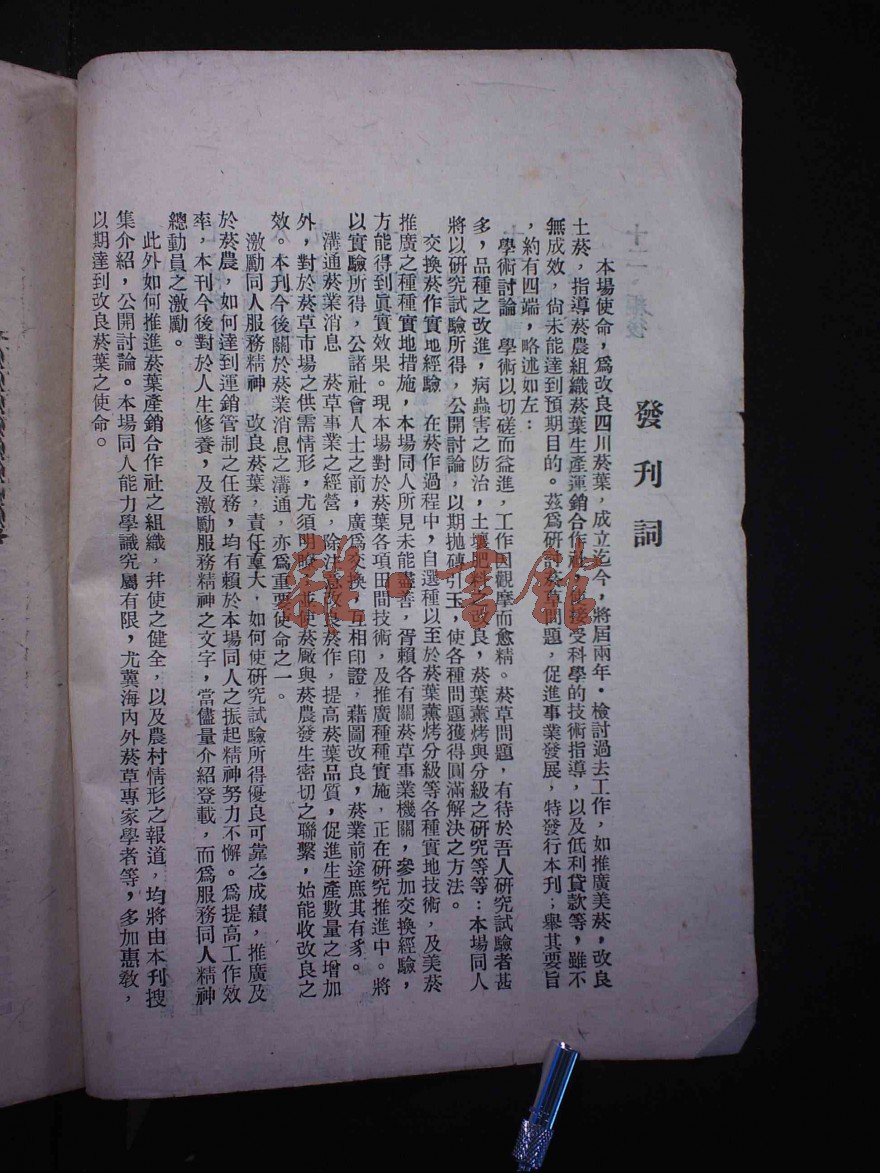 發刊詞
本場使命，爲改良四川菸葉，成立迄今，將屆兩年．檢討過去工作，如推廣美菸，改良
土菸，指導菸農組織菸葉生產運銷合作社，使接受科學的技術指導，以及低利貸款等，雖不
無成效，尙未能達到預期目的。茲爲硏討菸草問題，促進事業發展，特發行本刊；舉其要旨
，約有四端，略述如左：
學術討論　學術以切磋而益進，工作因觀摩而愈精。菸草問題，有待於吾人硏究試驗者甚
多，品種之改進，病蟲害之防治，土壤肥料之改良，菸葉薰烤與分級之硏究等等：本場同人
將以硏究試驗所得，公開討論，以期拋磚引玉，使各種問題獲得圓滿解決之方法。
交換菸作實地經驗　在菸作過程中，自選種以至於菸葉薰烤分級等各種實地技術，及美菸
推廣之種種實地措施，本場同人所見未能盡善，胥賴各有關菸草事業機關，參加交換經驗，
方能得到眞實效果。現本場對於菸葉各項田間技術，及推廣種種實施，正在硏究推進中。將
以實驗所得，公諸社會人士之前，廣爲交換，互相印證，藉圖改良，菸業前途庶其有豸。
溝通菸業消息　菸草事業之經營，除注意改良菸作，提高菸葉品質，促進生產數量之增加
外，對於菸草市場之供需情形，尤須明瞭，使菸廠與菸農發生密切之聯繫，始能收改良之
效。本刊今後關於菸業消息之溝通，亦爲重要使命之一。
激勵同人服務精神　改良菸葉，責任重大，如何使硏究試驗所得優良可靠之成績，推廣及
於菸農，如何達到運銷管制之任務，均有賴於本場同人之振起精神努力不懈。爲提高工作效
率，本刊今後對於人生修養，及激勵服務精神之文字，當儘量介紹登載，而爲服務同人精神
總動員之激勵。
此外如何推進菸葉產銷合作社之組織，幷使之健全，以及農村情形之報道，均將由本刊搜
集介紹，公開討論。本場同人能力學識究屬有限，尤冀海內外菸草專家學者等，多加惠敎，
以期達到改良菸葉之使命。
雜·書館